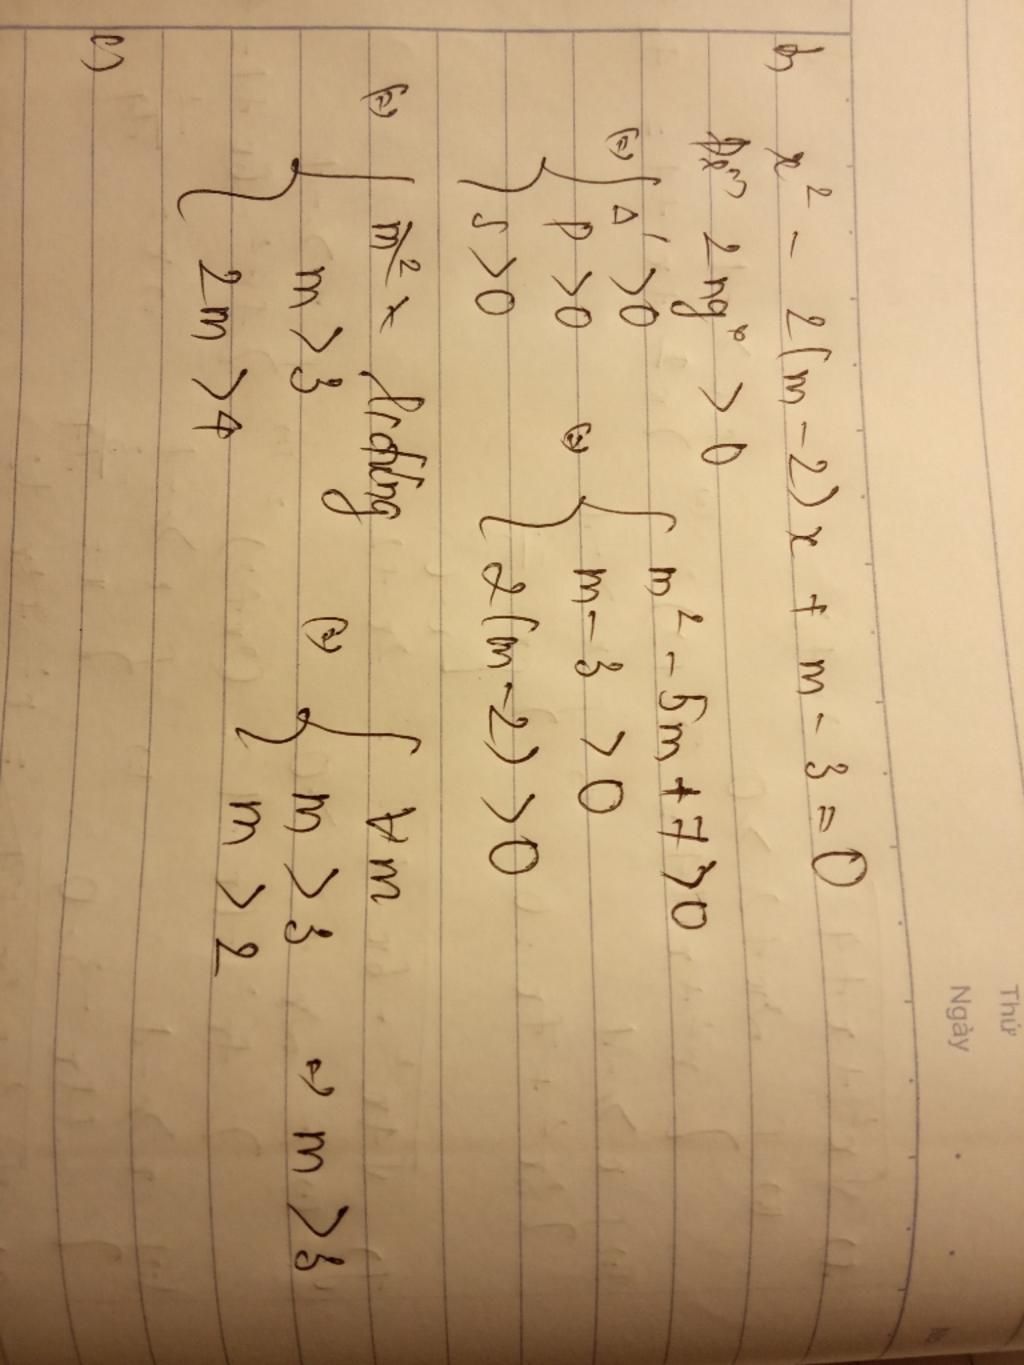 Thứ
Ngày
b) x² - 2(m-2)x + m - 3 = 0
2 ng° > 0
(=) { Δ' > 0
P > 0
S > 0
(=) { m² - 5m + 7 > 0
m - 3 > 0
2(m-2) > 0
(=) { m² x
m > 3
2m > 4
(=) { ∀m
m > 3
m > 2
=) m > 3
c)